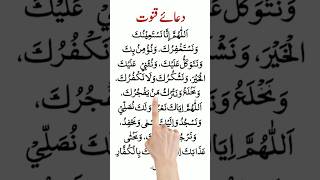 دعائے قنوت
اَللّٰهُمَّ اِنَّا نَسْتَعِيْنُكَ
وَنَسْتَغْفِرُكَ، وَنُؤْمِنُ بِكَ
وَنَتَوَكَّلُ عَلَيْكَ، وَنُثْنِيْ عَلَيْكَ
الْخَيْرَ، وَنَشْكُرُكَ وَلَا نَكْفُرُكَ،
وَنَخْلَعُ وَنَتْرُكُ مَنْ يَّفْجُرُكَ،
اَللّٰهُمَّ اِيَّاكَ نَعْبُدُ وَلَكَ نُصَلِّيْ
وَنَسْجُدُ وَاِلَيْكَ نَسْعٰى وَنَحْفِدُ،
وَنَرْجُوْ وَنَخْشٰى
عَذَابَكَ بِالْكُفَّارِ